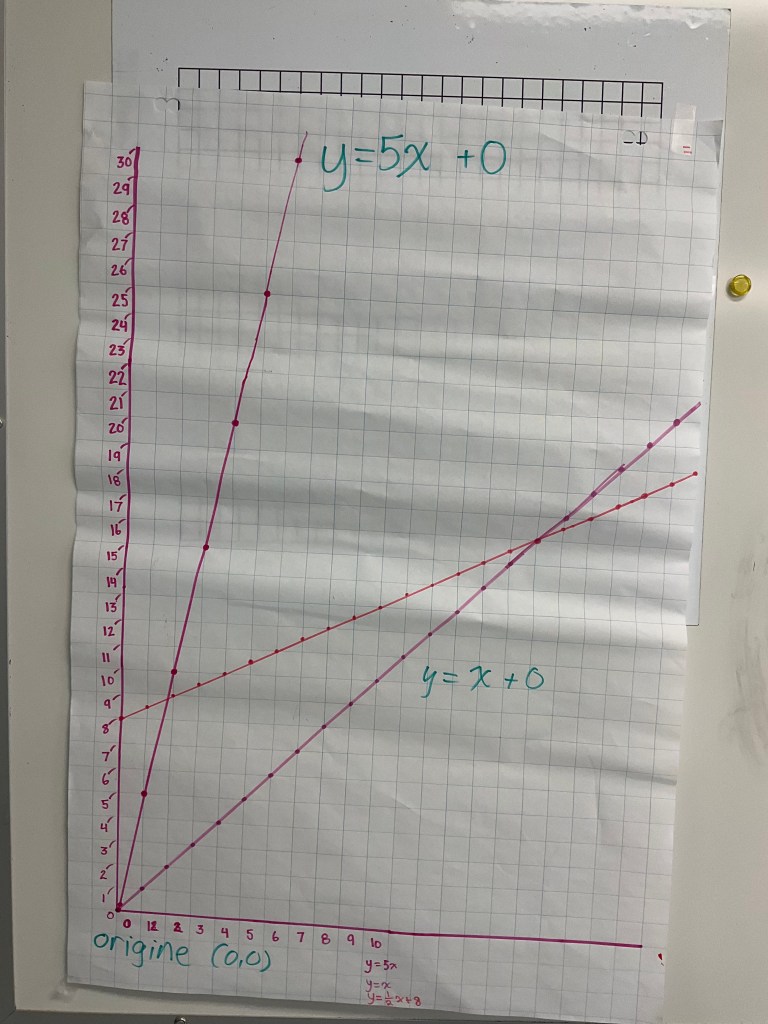 y=5x +0
30
29
28
27
26
25
24
23
22
21
20
19
18
17
16
15
14
13
12
11
10
9
8
7
6
5
4
3
2
1
0
y=x+0
0 1 2 3 4 5 6 7 8 9 10
origine (0,0)
y=5x
y=x
y=½x+8